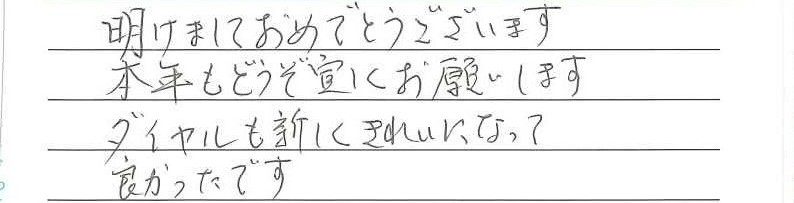 明けましておめでとうございます
本年もどうぞ宜しくお願いします
ダイヤルも新しくきれいになって
良かったです